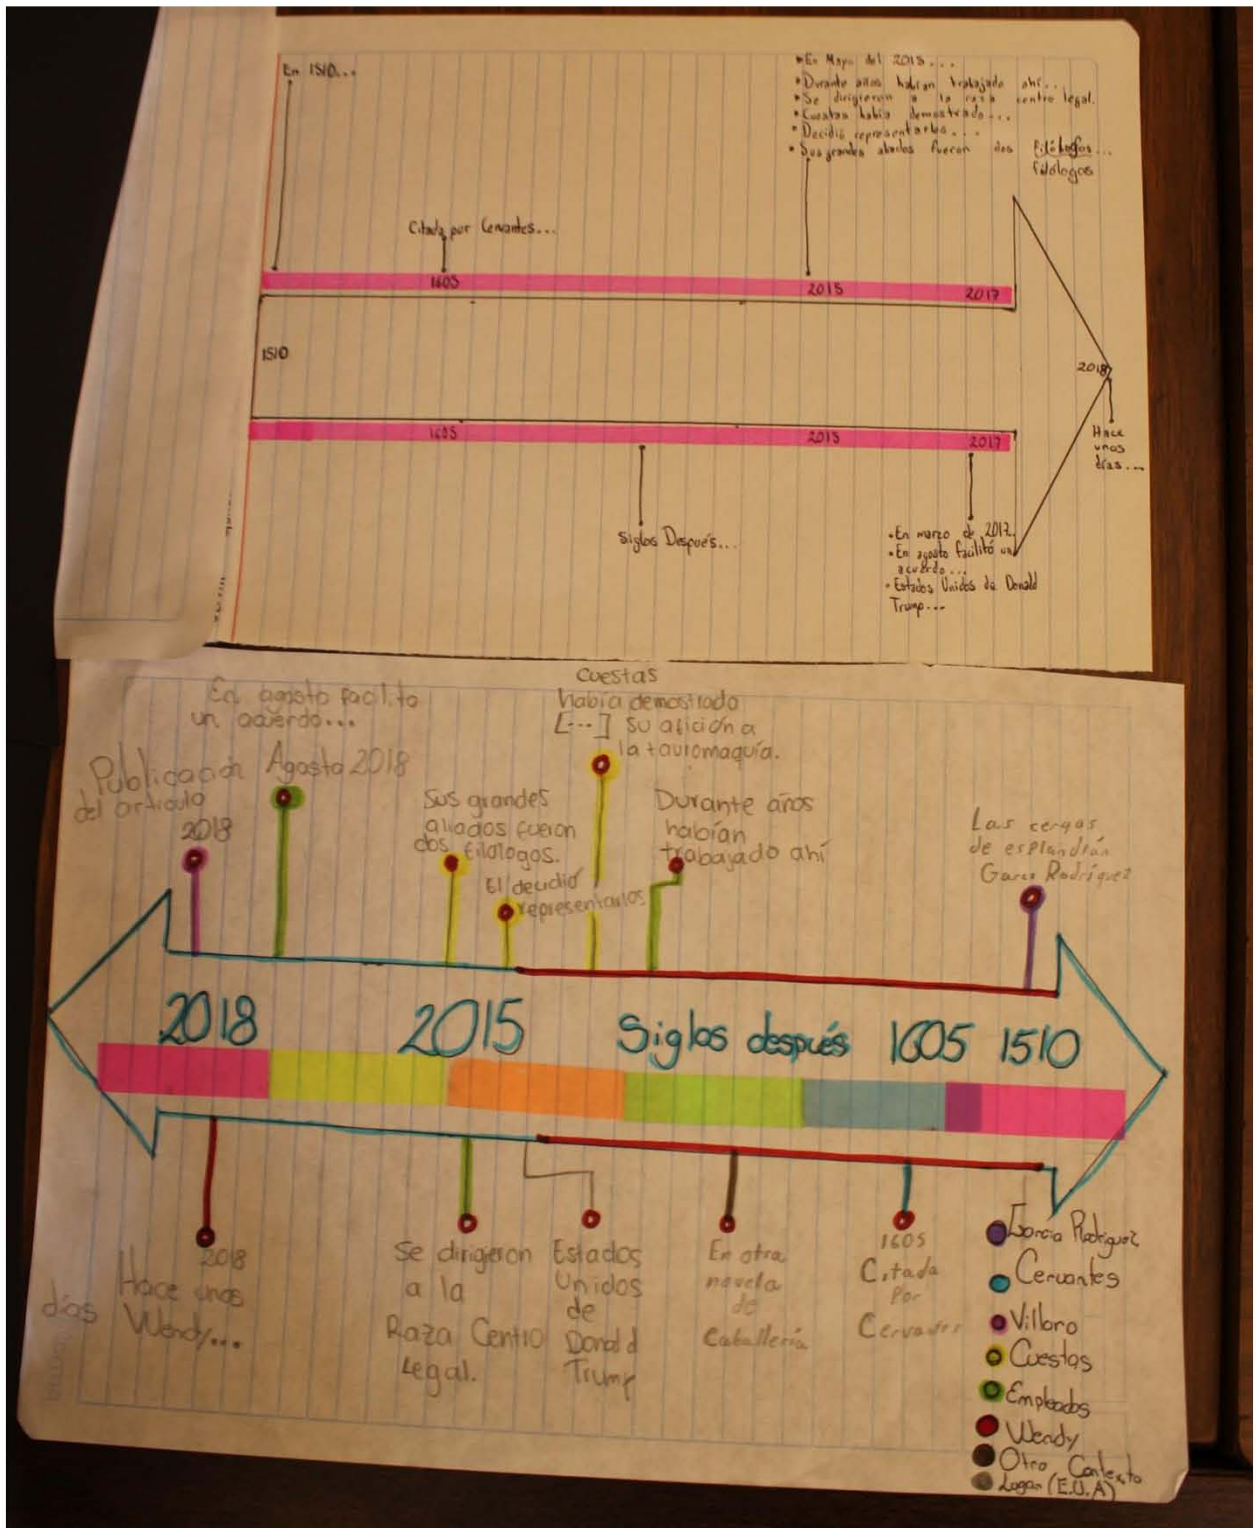 En 1510...
*En Mayo del 2015...
*Durante años habían trabajado ahí...
*Se dirigieron a la raza centro legal.
*Cuestas había demostrado...
*Decidió representarlos...
*Sus grandes aliados fueron dos filólogos...
filólogos
Citada por Cervantes...
1605
2015
2017
1510
2018
1605
2015
2017
Hace
unos
días...
Siglos Después...
•En marzo de 2017.
•En agosto facilitó un
acuerdo...
•Estados Unidos de Donald
Trump...
En agosto facilito
un acuerdo...
Cuestas
había demostrado
[...] su afición a
la tauromaquía.
Publicación
del articulo
2018
Agosto 2018
Sus grandes
aliados fueron
dos filologos.
El decidió
representarlos
Durante años
habían
trabajado ahí
Las cergas
de esplandián
Garci Rodríguez
2018
2015
Siglos después
1605
1510
2018
Hace unos
días Wendy...
Se dirigieron
a la
Raza Centro
Legal.
Estados
Unidos
de
Donald
Trump
En otra
novela
de
Caballería
1605
Citada
Por
Cervantes
García Rodríguez
Cervantes
Villoro
Cuestas
Empleados
Wendy
Otro Contexto
Lugar (E.U.A)